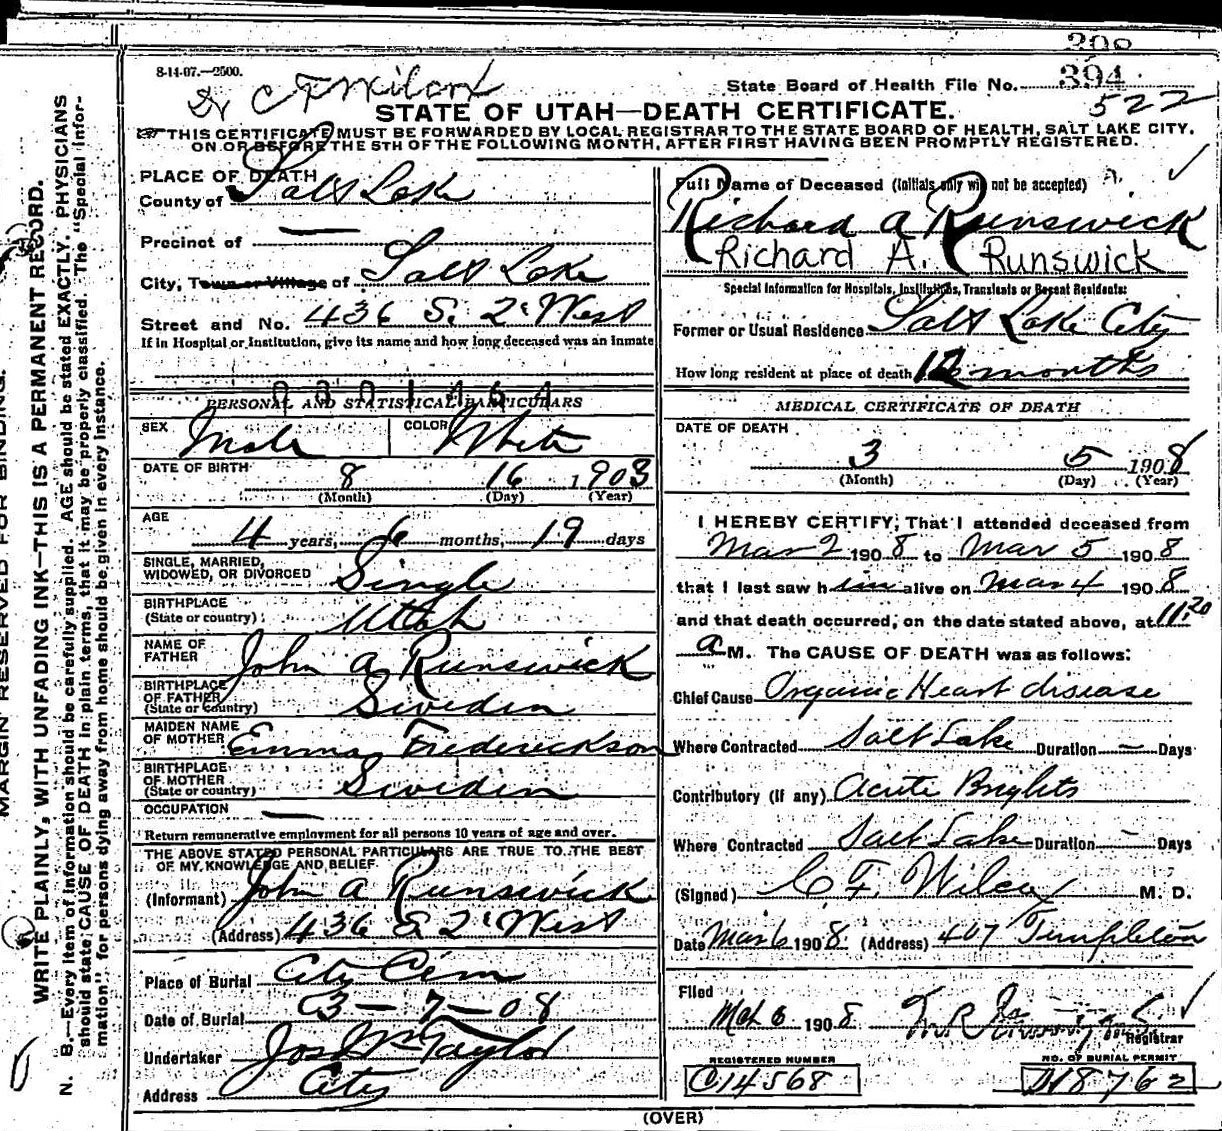 8-14-07.—2500.
Dr C F Wilcox
State Board of Health File No. 394
522
STATE OF UTAH—DEATH CERTIFICATE.
THIS CERTIFICATE MUST BE FORWARDED BY LOCAL REGISTRAR TO THE STATE BOARD OF HEALTH, SALT LAKE CITY,
ON OR BEFORE THE 5TH OF THE FOLLOWING MONTH, AFTER FIRST HAVING BEEN PROMPTLY REGISTERED.
PLACE OF DEATH
County of Salt Lake
Precinct of —
City, Town or Village of Salt Lake
Street and No. 436 S. 2 West
If in Hospital or Institution, give its name and how long deceased was an inmate
PERSONAL AND STATISTICAL PARTICULARS
SEX Male COLOR White
DATE OF BIRTH 8 16 1903
(Month) (Day) (Year)
AGE 4 years, 6 months, 19 days
SINGLE, MARRIED, WIDOWED, OR DIVORCED Single
BIRTHPLACE (State or country) Utah
NAME OF FATHER John A Runswick
BIRTHPLACE OF FATHER (State or Country) Sweden
MAIDEN NAME OF MOTHER Emma Fredereckson
BIRTHPLACE OF MOTHER (State or country) Sweden
OCCUPATION —
Return remunerative employment for all persons 10 years of age and over.
THE ABOVE STATED PERSONAL PARTICULARS ARE TRUE TO THE BEST
OF MY KNOWLEDGE AND BELIEF.
(Informant) John A Runswick
(Address) 436 S 2 West
Place of Burial City Cem
Date of Burial 03-7-08
Undertaker Jos Wm Taylor
Address City
Full Name of Deceased (Initials only will not be accepted)
Richard A Runswick
Richard A. Runswick
Special Information for Hospitals, Institutions, Transients or Recent Residents:
Former or Usual Residence Salt Lake City
How long resident at place of death months
MEDICAL CERTIFICATE OF DEATH
DATE OF DEATH
3 5 1908
(Month) (Day) (Year)
I HEREBY CERTIFY, That I attended deceased from
Mar 2 1908 to Mar 5 1908
that I last saw him alive on Mar 4 1908
and that death occurred, on the date stated above, at 11.20
a M. The CAUSE OF DEATH was as follows:
Chief Cause Organic Heart disease
Where Contracted Salt Lake Duration — Days
Contributory (if any) Acute Brights
Where Contracted Salt Lake Duration — Days
(Signed) C F. Wilcox M. D.
Date Mar 6 1908. (Address) 407 Templeton
Filed
Mch 6 1908 Registrar
REGISTERED NUMBER
C14568
NO. OF BURIAL PERMIT
(OVER)
MARGIN RESERVED FOR BINDING.
WRITE PLAINLY, WITH UNFADING INK—THIS IS A PERMANENT RECORD.
N. B.—Every item of information should be carefully supplied. AGE should be stated EXACTLY. PHYSICIANS
should state CAUSE OF DEATH in plain terms, that it may be properly classified. The "Special Infor-
mation" for persons dying away from home should be given in every instance.